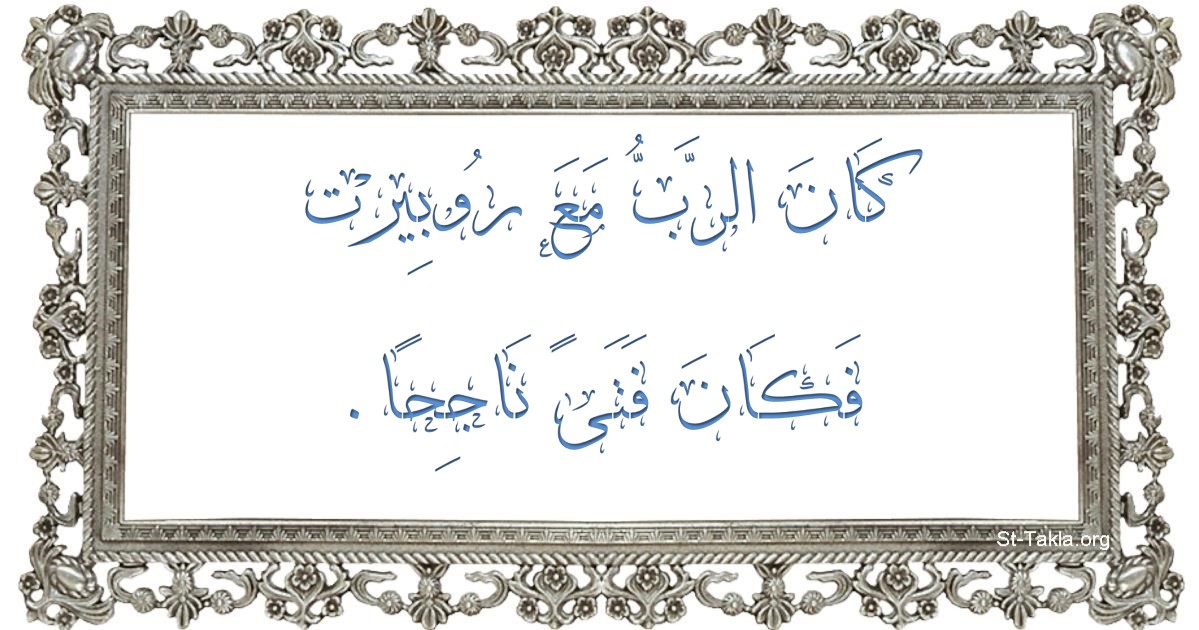 كَانَ الرَّبُّ مَعَ رُوبِيرْت
فَكَانَ فَتَىً نَاجِحًا.
St-Takla.org